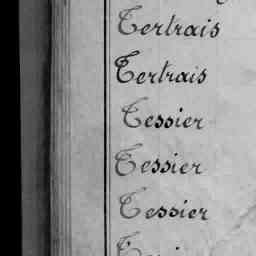 Tertrais
Tertrais
Tessier
Tessier
Tessier